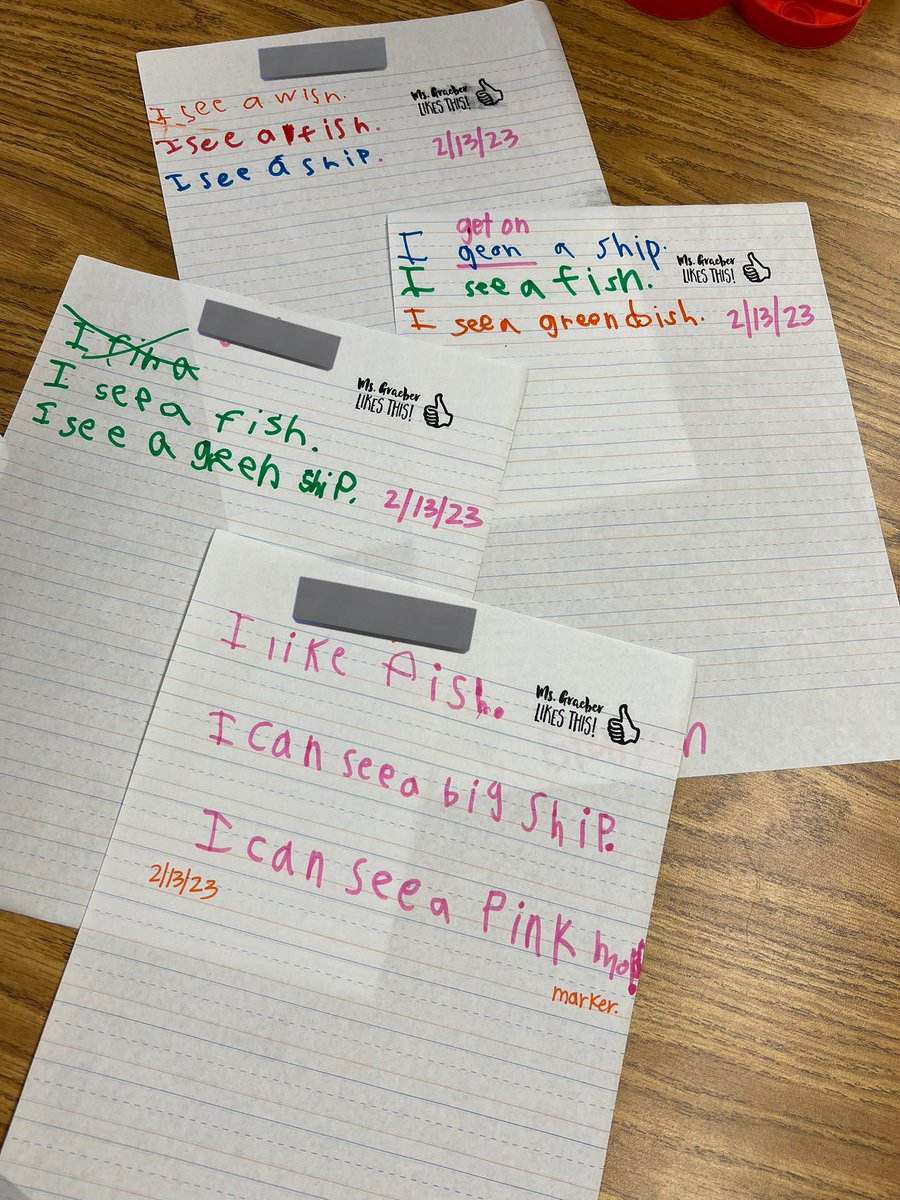 I see a wish.
I see a fish.
I see a ship.
Ms. Graeber
LIKES THIS!
2/13/23
get on
I geon a ship.
I see a fish.
I see a green dish.
Ms. Graeber
LIKES THIS!
2/13/23
I fih a
I see a fish.
I see a green ship.
Ms. Graeber
LIKES THIS!
2/13/23
I like fish.
I can see a big ship.
I can see a Pink
marker.
Ms. Graeber
LIKES THIS!
2/13/23